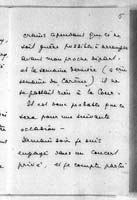 5
crains cependant que ce ne
soit guère possible d'arranger
avant mon proche départ.
et la semaine dernière (
semaine du Carême) il ne
se passait rien à la Cour.
Il est donc probable que ce
sera pour une suivante
occasion —
Demain soir je suis
engagé dans un concert
privé, et je compte partir